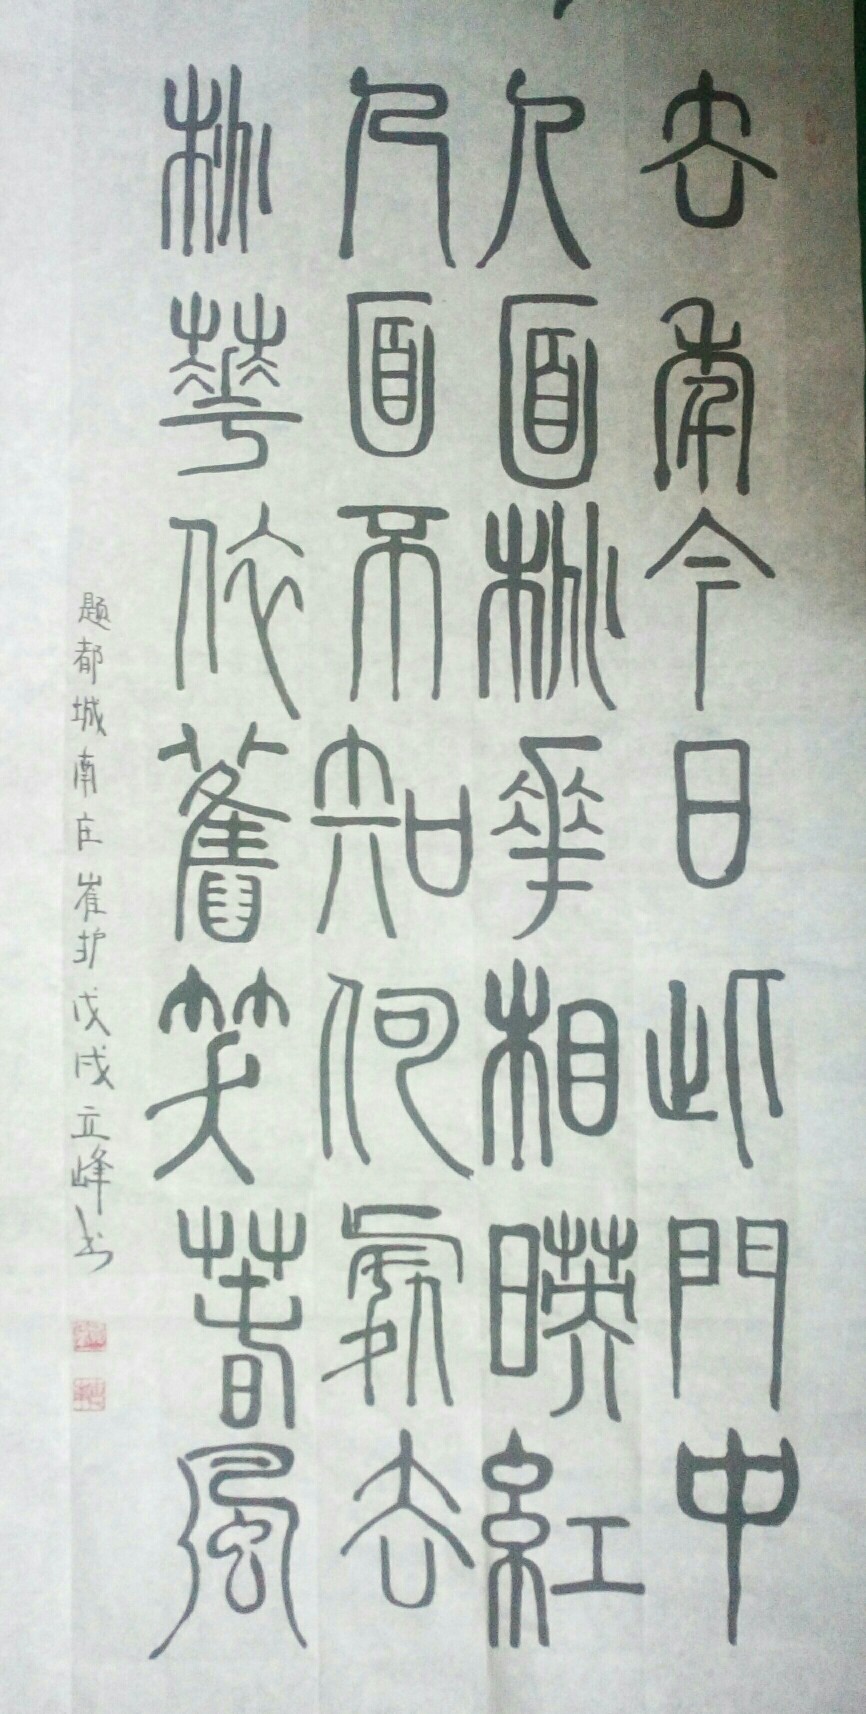 去年今日此門中
人面桃華相暎紅
人面不知何處去
桃華依舊笑春風
题都城南庄崔护戊戌立峰书